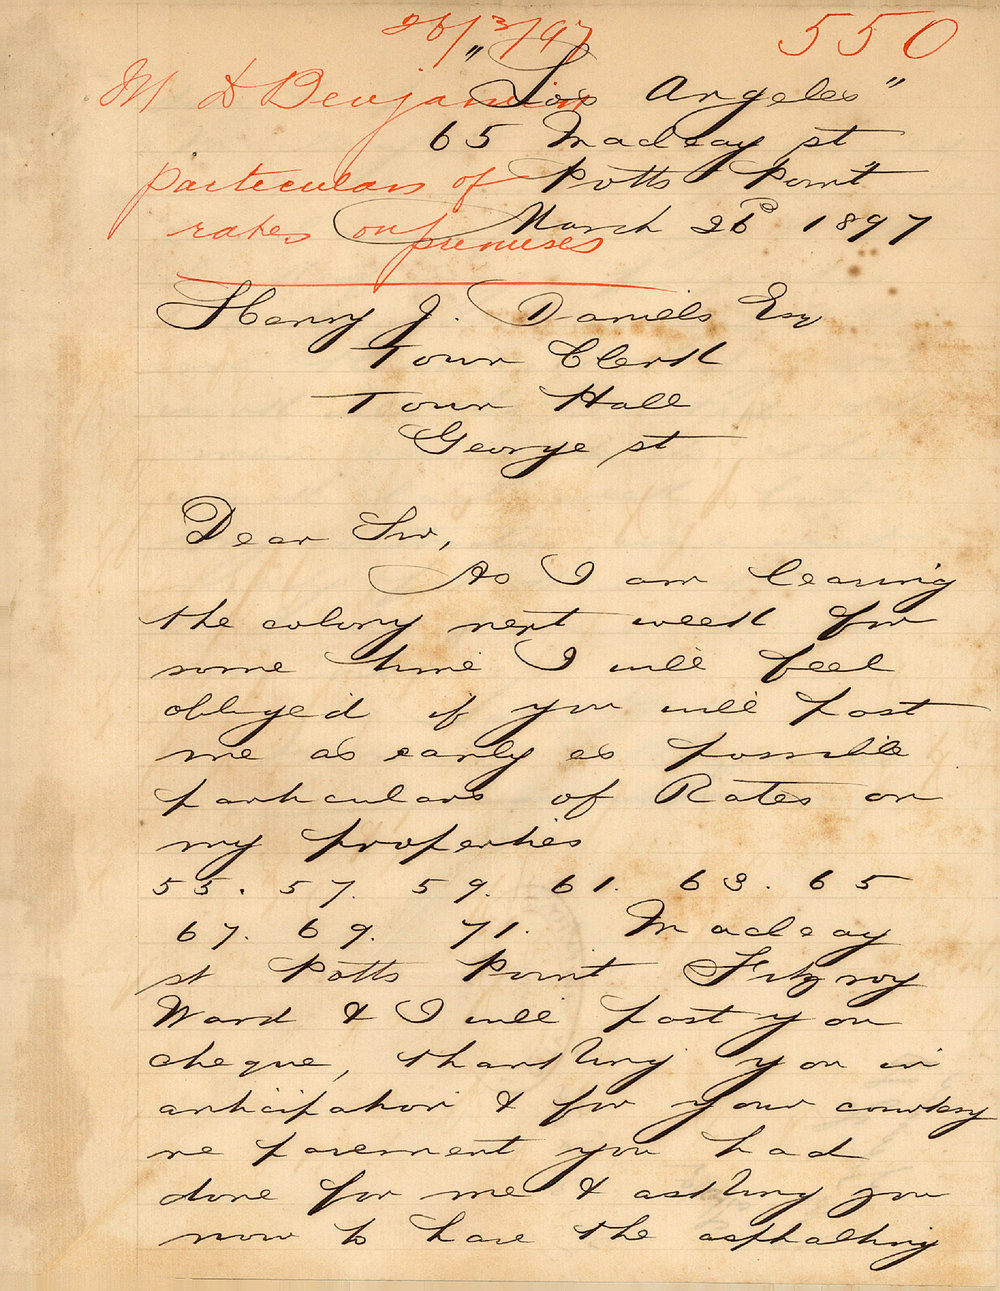 26/3/97
550
M D Benjamin
particulars of
rates on premises
"Los Angeles"
65 Macleay st
Potts Point
March 26 1897
Henry J. Daniels Esq
Town Clerk
Town Hall
George st
Dear Sir,
As I am leaving
the colony next week for
some time I will feel
obliged if you will post
me as early as possible
particulars of Rates on
my properties
55. 57. 59. 61. 63. 65
67. 69. 71. Macleay
st Potts Point Fitzroy
Ward & I will post you
cheque, thanking you in
anticipation & for your courtesy
re pavement you had
done for me & asking you
now to have the asphalting